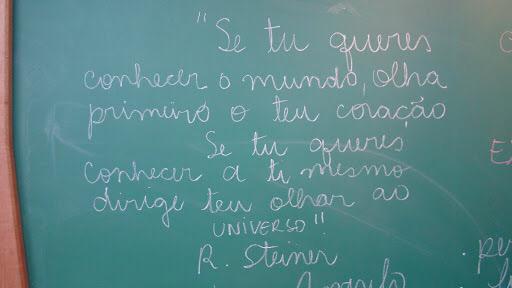 "Se tu queres
conhecer o mundo, olha
primeiro o teu coração
Se tu queres
conhecer a ti mesmo
dirige teu olhar ao
UNIVERSO"
R. Steiner